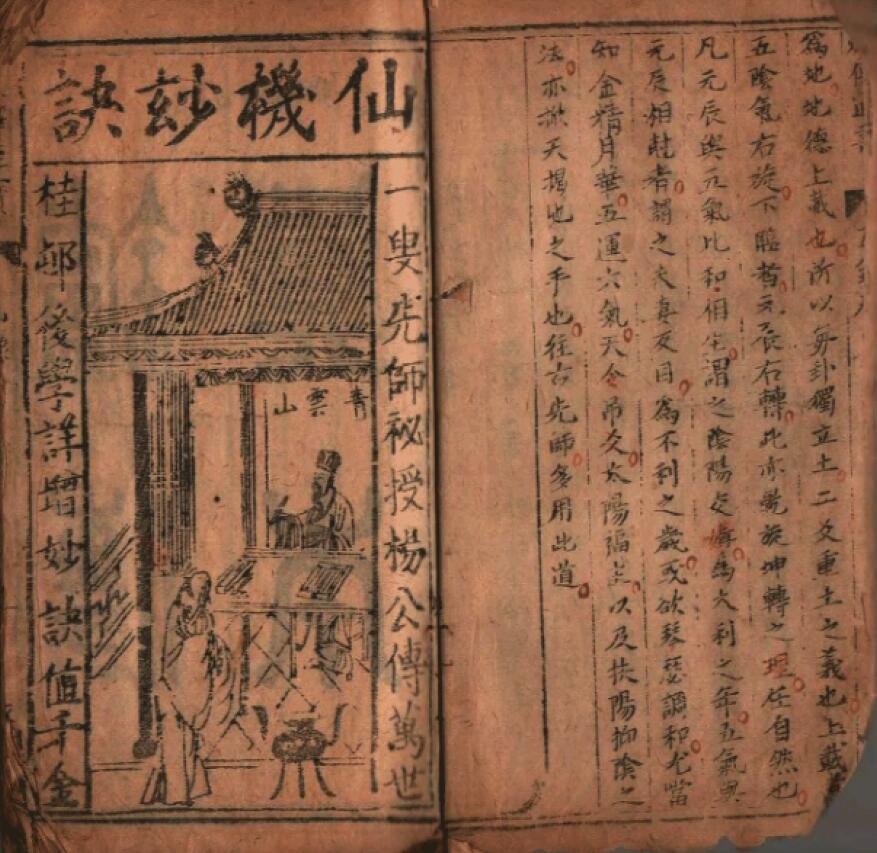 為地地德上載也所以每卦獨立土二爻重土之義也上載
五陰氣右旋下臨者元辰右轉此亦乾旋坤轉之理任自然也
凡元辰與元氣比和相生謂之陰陽交媾為大利之年五氣與
元辰相尅者謂之夫妻反目為不利之歲或欲琴瑟調和尤當
知金精月華五運六氣天令太陽福以及扶陽抑陰之
法亦掀天揭地之手也往古先師多用此道
仙機玅訣
一叟先師祕授楊公傳萬世
青雲山
桂邨後學詳增妙訣值千金